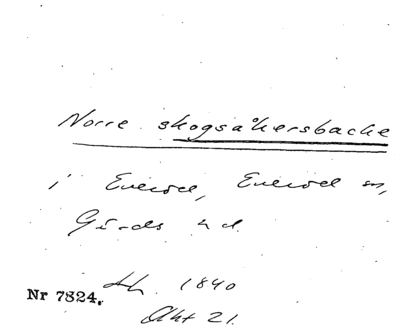 Norre skogsåkersbacke
i Everöd, Everöd sn,
Gärds hd.
Lh. 1840
Nr 7824.
Akt 21.